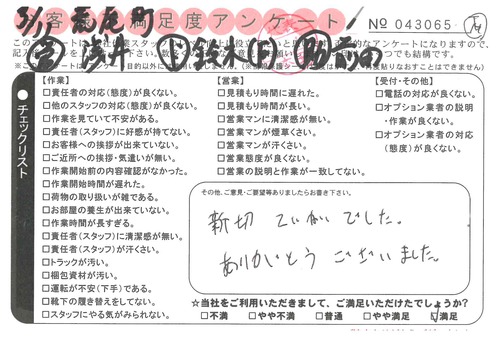 お客様満足度アンケート
No 043065
※このアンケートは
チェックリスト
【作業】
□責任者の対応(態度)が良くない。
□他のスタッフの対応(態度)が良くない。
□作業を見ていて不安がある。
□責任者(スタッフ)に好感が持てない。
□お客様への挨拶が出来ていない。
□ご近所への挨拶・気遣いが無い。
□作業開始前の内容確認がなかった。
□作業開始時間が遅れた。
□荷物の取り扱いが雑である。
□お部屋の養生が出来ていない。
□作業時間が長すぎる。
□責任者(スタッフ)に清潔感が無い。
□責任者(スタッフ)が汗くさい。
□トラックが汚い。
□梱包資材が汚い。
□運転が不安(下手)である。
□靴下の履き替えをしてない。
□スタッフにやる気がみられない。
【営業】
□見積もり時間に遅れた。
□見積もり時間が長い。
□営業マンに清潔感が無い。
□営業マンが煙草くさい。
□営業マンが汗くさい。
□営業態度が良くない。
□営業の説明と作業が一致してない。
【受付・その他】
□電話の対応が良くない。
□オプション業者の説明
・作業が良くない。
□オプション業者の対応
(態度)が良くない。
その他、ご意見・ご要望等ありましたらお書き下さい。
親切 ていねい でした。
ありがとう ございました。
☆当社をご利用いただきまして、ご満足いただけたでしょうか?
□不満 □やや不満 □普通 □やや満足 ☑満足